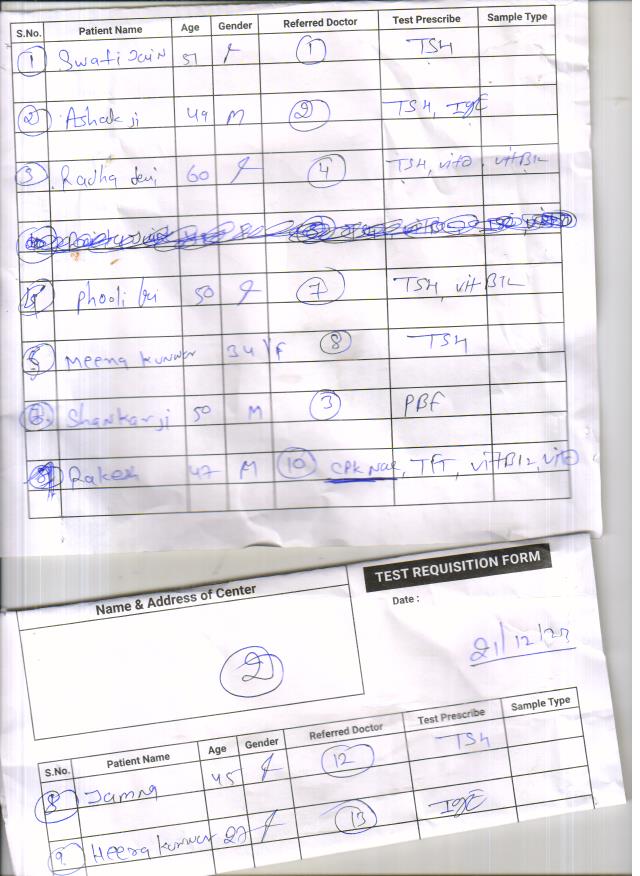 S.No. Patient Name Age Gender Referred Doctor Test Prescribe Sample Type
1 Swati Jain 51 f 1 TSH
2 Ashok ji 49 M 2 TSH, IgE
3 Radha devi 60 f 4 TSH, vitD, vitB12
Phooli bai 50 f 7 TSH, vit B12
5 Meena kunwar 34 F 8 TSH
6 Shankarji 50 M 3 PBF
Rakesh 47 M 10 CPK Nac, TFT, vitB12, vitD
TEST REQUISITION FORM
Name & Address of Center
Date :
2
21/12/23
S.No. Patient Name Age Gender Referred Doctor Test Prescribe Sample Type
8 Jamna 45 f 12 TSH
9. Heera kunwar 27 f 13 IgE